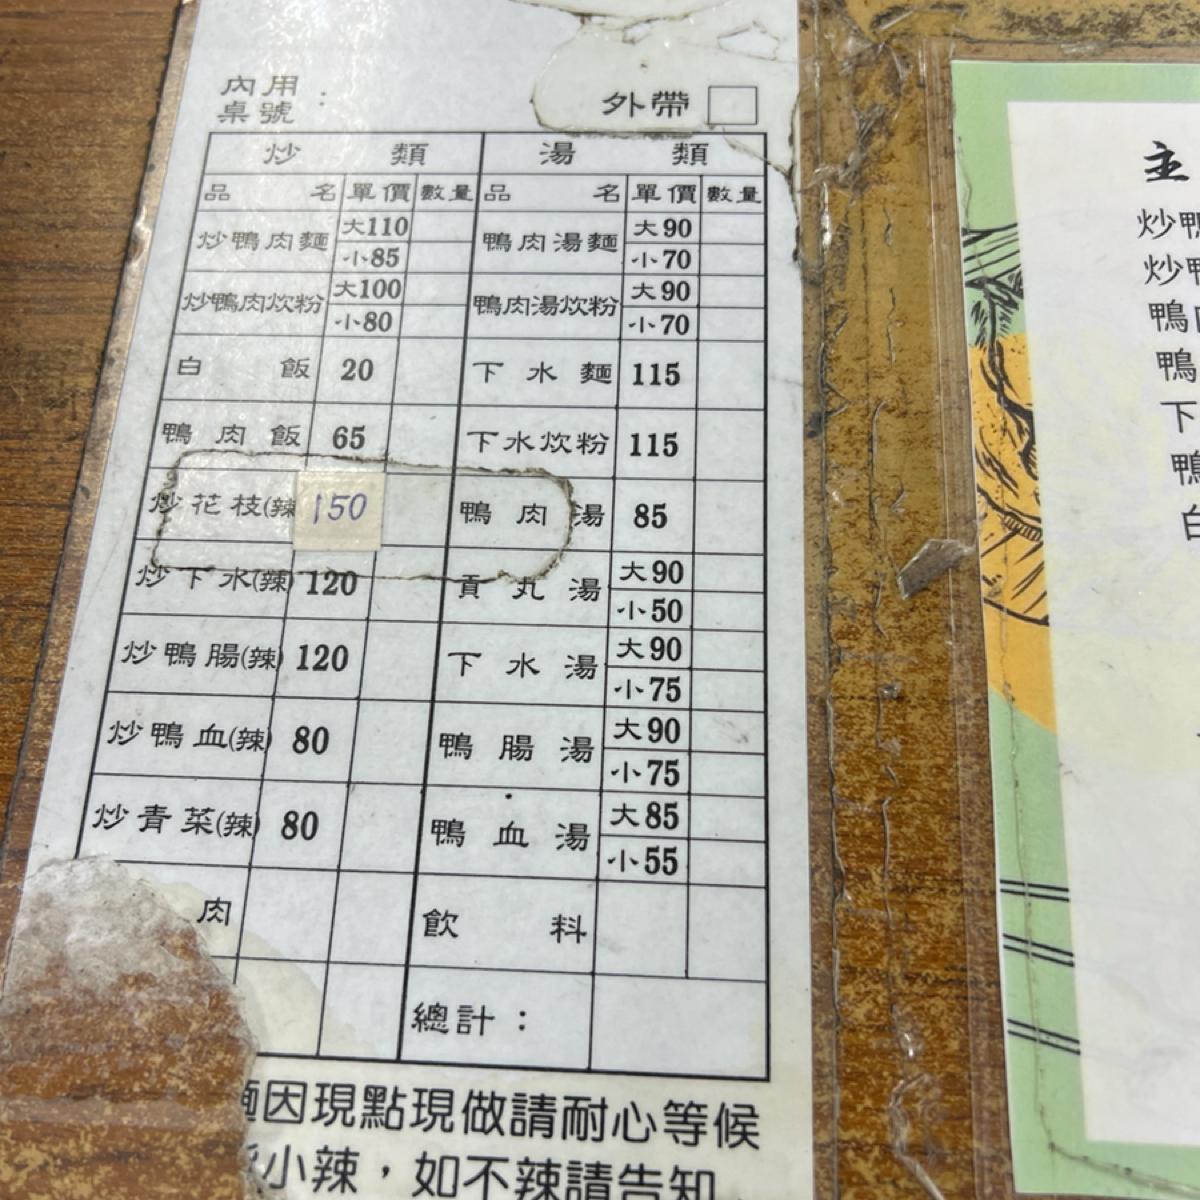 內用
桌號：
外帶
炒類 湯類
品名 單價 數量 品名 單價 數量
炒鴨肉麵 大110 小85 鴨肉湯麵 大90 小70
炒鴨肉炊粉 大100 小80 鴨肉湯炊粉 大90 小70
白飯 20 下水麵 115
鴨肉飯 65 下水炊粉 115
炒花枝(辣 150 鴨肉湯 85
炒下水(辣) 120 貢丸湯 大90 小50
炒鴨腸(辣) 120 下水湯 大90 小75
炒鴨血(辣) 80 鴨腸湯 大90 小75
炒青菜(辣) 80 鴨血湯 大85 小55
肉 飲料
總計：
麵因現點現做請耐心等候
小辣，如不辣請告知
主
炒鴨
炒鴨
鴨肉
鴨
下
鴨
白